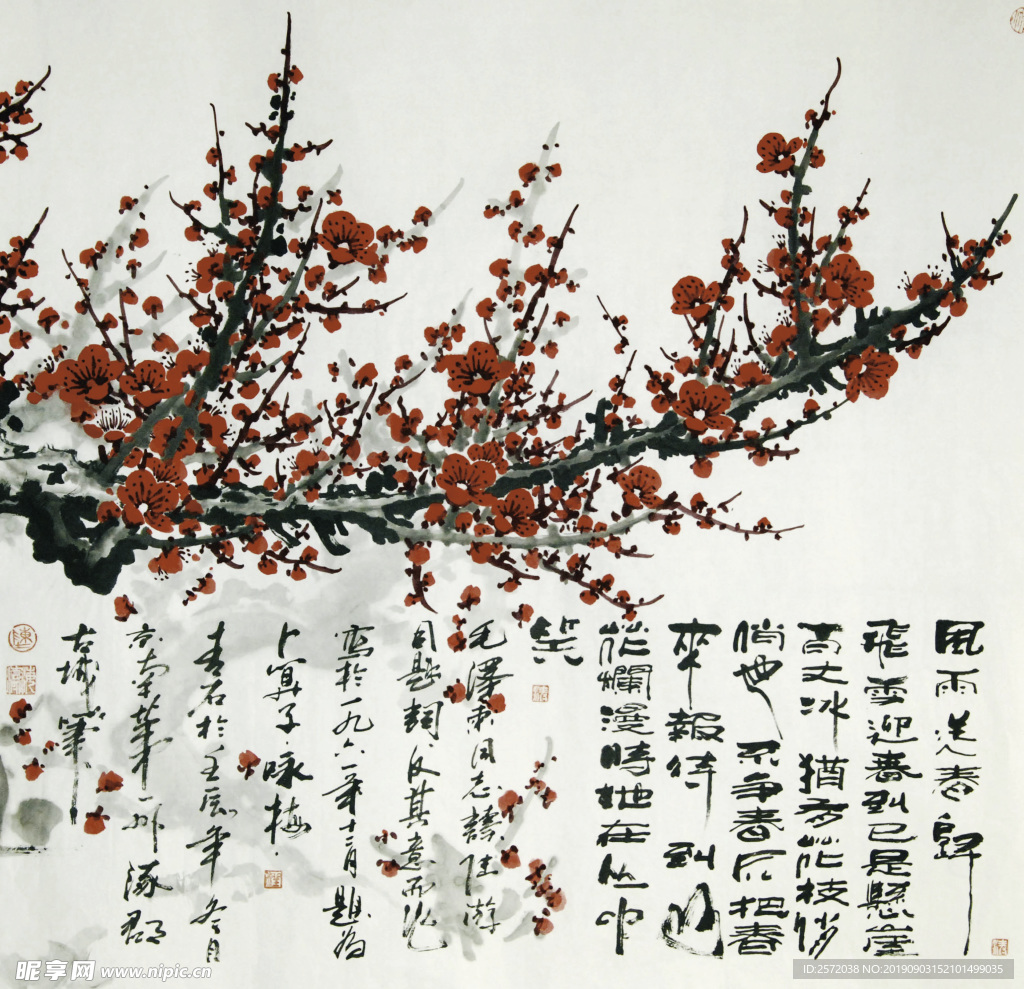 風雨送春歸
飛雪迎春到已是懸崖
百丈冰猶有花枝俏
俏也不爭春只把春
來報待到山
花爛漫時她在丛中
笑
毛澤東同志讀陸游
同題詞反其意而作
寫於一九六一年十二月題為
卜算子咏梅
青石於壬辰年冬月
京南華 涿郡
古城筆
昵享网 www.nipic.cn
ID:2572038 NO:20190903152101499035